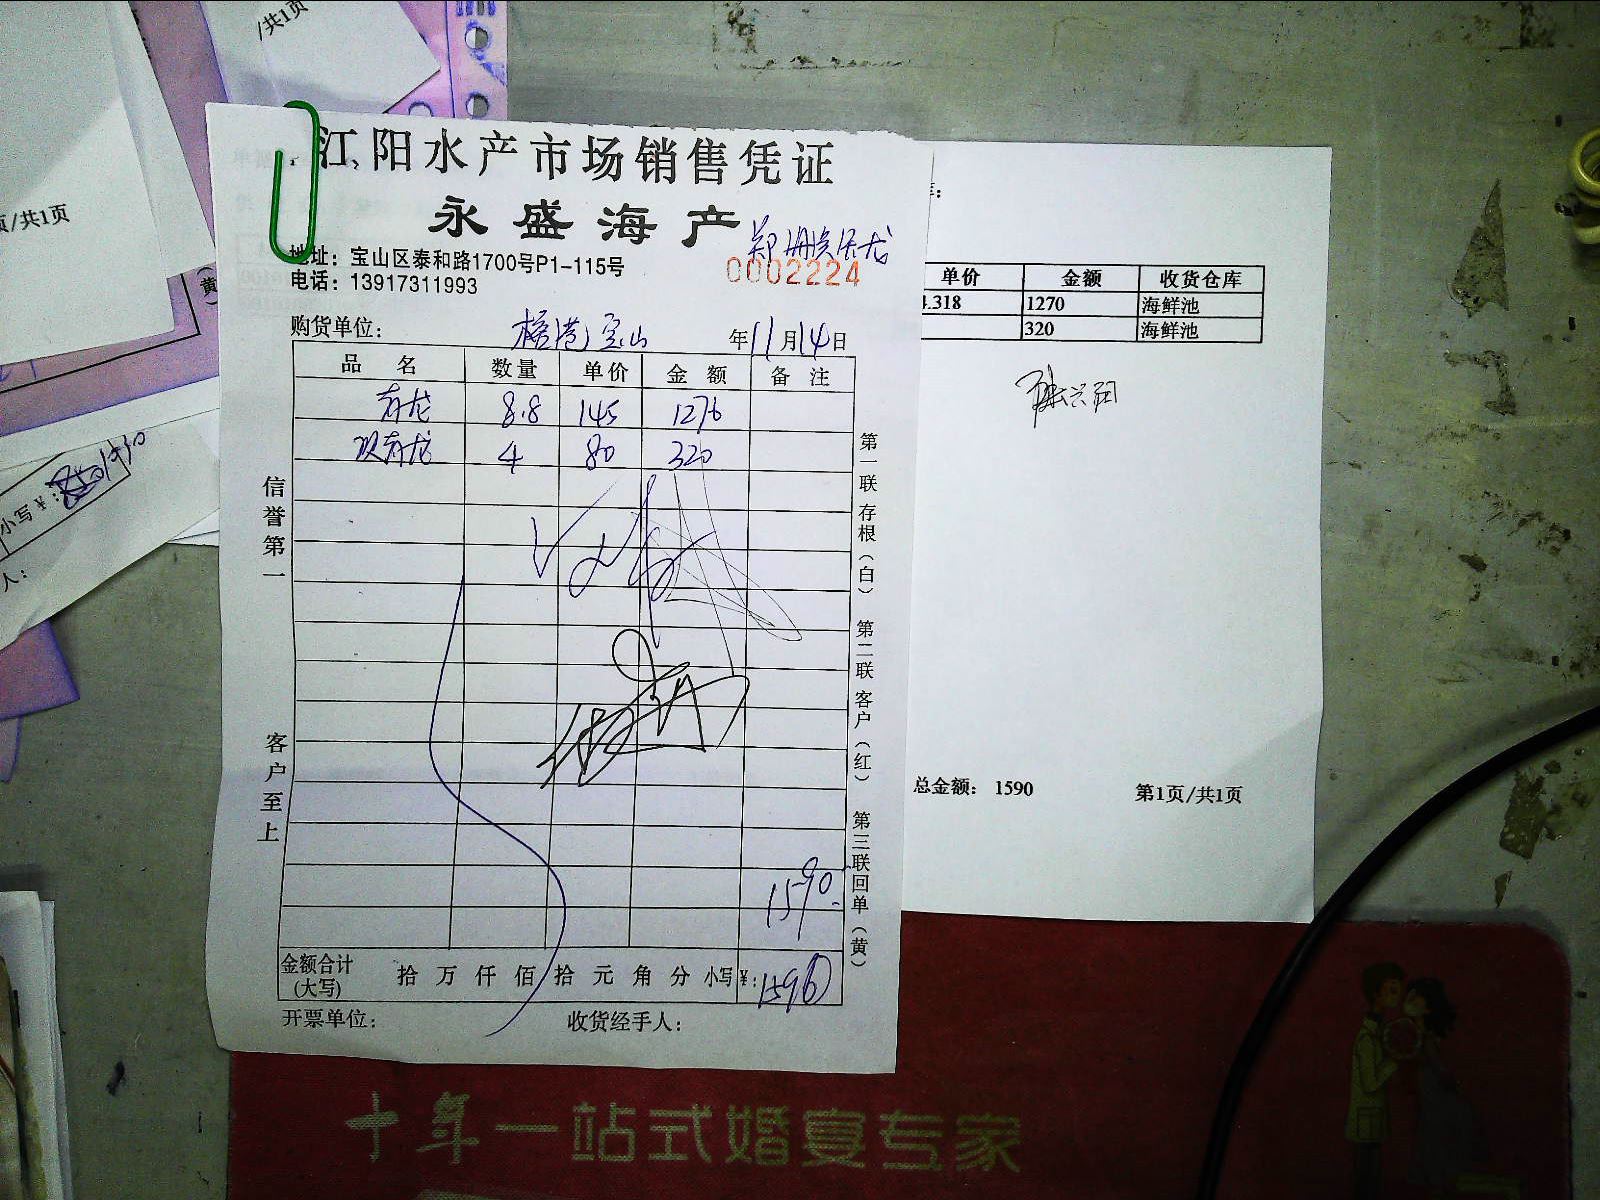 /共1页
页/共1页
江阳水产市场销售凭证
永盛海产
地址：宝山区泰和路1700号P1-115号
0002224
电话：13917311993
购货单位： 宝山 年11月14日
品名 数量 单价 金额 备注
青龙 8.8 145 1276
青龙 4 80 320
信誉第一
客户至上
第一联存根（白） 第二联客户（红） 第三联回单（黄）
1590.
金额合计(大写) 拾 万 仟 佰 拾 元 角 分 小写￥：1596
开票单位： 收货经手人：
单价 金额 收货仓库
4.318 1270 海鲜池
320 海鲜池
总金额： 1590 第1页/共1页
（黄）
小写￥：
人：
十年一站式婚宴专家